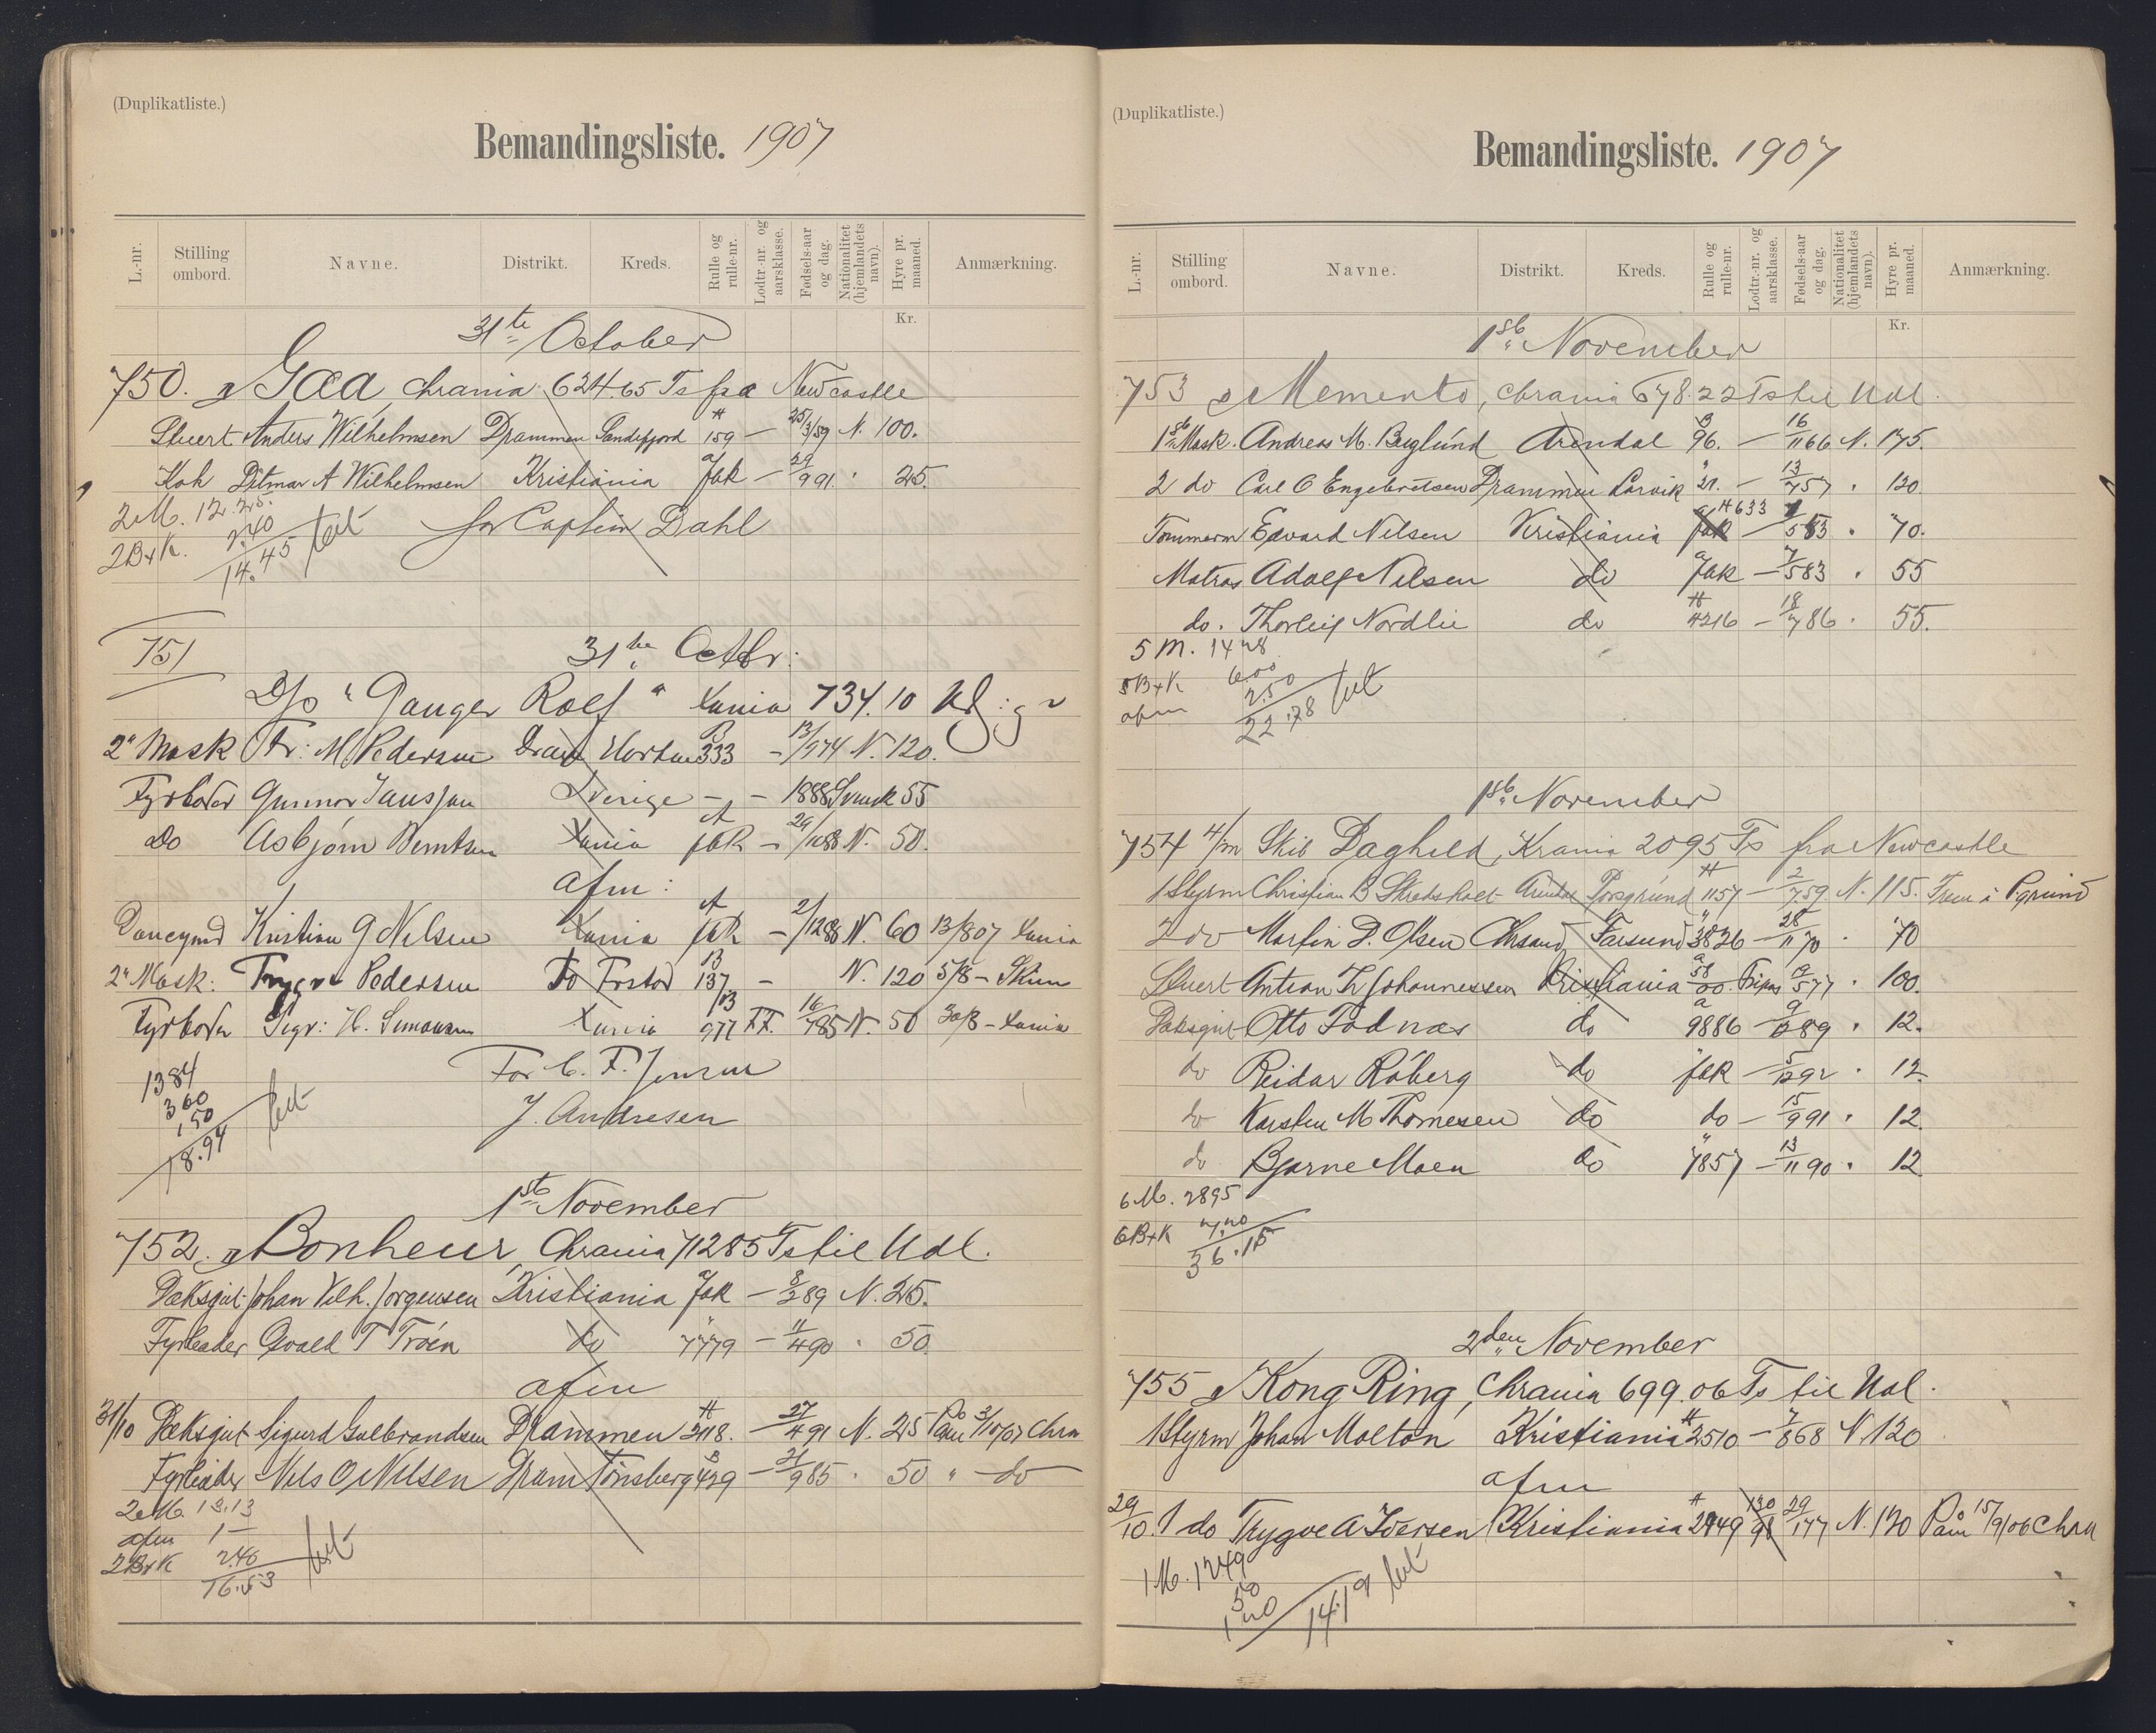 (Duplikatliste.)
Bemandingsliste. 1907
L.-nr. Stilling ombord. Navne. Distrikt. Kreds. Rulle og rulle-nr. Lodtr.-nr. og aarsklasse. Fødsels-aar og dag. Nationalitet (hjemlandets navn). Hyre pr. maaned. Anmærkning.
Kr.
31te October
750. Gæa, Chrania 624.65 Ts fra Newcastle
Stuert Anders Wilhelmsen Drammen Sandefjord A 159 — 25/3/59 N. 100.
Kok Ditmar A Wilhelmsen Kristiania a fak — 29/9 91 " 25.
2 M. 12.25.
for Captein Dahl
2 B+K. 2.40
14.45
751
31te Octbr:
D/s "Ganger Rolf" Xania 734.10
2n Mask Fr: M Pedersen Dram Horten B 333 — 13/9 74 N. 120.
Fyrbøder Gunnar Jansson Sverige — — 1888 Svensk 55
Do Asbjørn Berntsen Xania A fak — 29/10 88 N. 50.
afm:
Donkeymd Kristian G Nilsen Xania A fak — 2/12 88 N. 60 13/8 07 Xania
2n Mask: Trygve Pedersen 137 — N. 120 5/8 — Skien
Fyrbøder Sigv: H. Xania B 977 F.F. 16/7 85 N. 50 30/8 — Xania
1384
For C. F. Jensen
360
150
J. Andresen
18.94
1ste November
752. Bonheur, Chrania 71285 Ts til Udl.
Dæksgut Johan Vilh. Jørgensen Kristiania a fak — 8/2 89 N. 25.
Fyrbøder Osvald T Trøen do " 7779 — 11/4 90 " 50.
afm
31/10 Dæksgut Sigurd Gulbrandsen Drammen A 2118. — 27/4 91 N. 25 Paam 3/10/07 Chra
Fyrbøder Nils O Nilsen Dram Tønsberg B 429 — 21/9 85 " 50 " do
2 M. 13.13
afm 1 —
2 B+K 2.40
16.53
(Duplikatliste.)
Bemandingsliste. 1907
L.-nr. Stilling ombord. Navne. Distrikt. Kreds. Rulle og rulle-nr. Lodtr.-nr. og aarsklasse. Fødsels-aar og dag. Nationalitet (hjemlandets navn). Hyre pr. maaned. Anmærkning.
Kr.
1ste November
753 Memento, Chrania 678.22 Ts til Udl.
1ste Mask. Andreas M. Buglund Arendal B 96. — 16/11 66 N. 175.
2 do Carl O Engebretsen Drammen Larvik " 21. — 13/7 57 " 120.
Tømmerm Edvard Nilsen Kristiania fak A 633 — 1/5 83 " 70.
Matros Adolf Nilsen do a fak — 7/5 83 " 55
do. Thorleif Nordlie do A 4216 — 18/7 86 " 55.
5 M. 1428
5 B+K 6.00
afm 2.50
22.78
1ste November
754 4/m Skib Daghild, Krania 2095 Ts fra Newcastle
1 Styrm Christian B Skredsholt Arendal Porsgrund A 1157 — 2/7 59 N. 115. Frem i Pgrund
2 do Martin D. Olsen Chrsand Farsund " 3826 — 28/11 70 " 70
Stuert Antron Johannessen Kristiania 9/5 77 " 100.
Dæksgut Otto Fodnæs do a 9886 — 9/12 89 " 12.
do Reidar Råberg do " fak — 5/12 92 " 12.
do Karsten M Thomesen do do — 15/9 91 " 12.
do Bjarne Moen do " 7857 — 13/11 90 " 12
6 M. 2895
6 B+K 7.20
36.15
2den November
755 Kong Ring, Chrania 699.06 Ts til Udl.
1 Styrm Johan Molton Kristiania A 2510 — 7/8 68 N. 120
afm
29/10. 1 do Trygve A Iversen Kristiania A 2949 130/98 29/1 77 N. 120 Paam 15/9/06 Chra
1 M. 1249
50
1 20
14.19